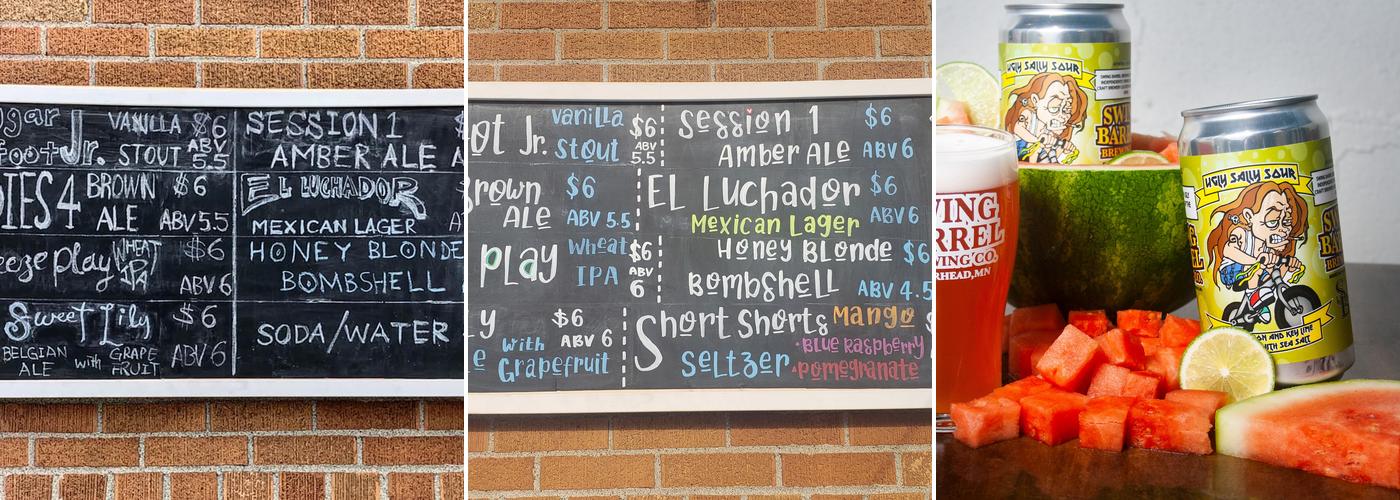 ugar
foot Jr. VANILLA $6
STOUT ABV
5.5
DIES 4 BROWN $6
ALE ABV 5.5
eeze Play WHEAT $6
IPA ABV 6
Sweet Lily $6
BELGIAN ALE with GRAPE FRUIT ABV 6
SESSION 1
AMBER ALE
EL LUCHADOR
MEXICAN LAGER
HONEY BLONDE
BOMBSHELL
SODA/WATER
ot Jr. vanilla $6
stout ABV
5.5
Brown $6
ALE ABV 5.5
PLAY wheat $6
IPA ABV
6
y $6
e with ABV 6
Grapefruit
Session 1 $6
Amber Ale ABV 6
EL Luchador $6
Mexican Lager ABV 6
Honey Blonde $6
Bombshell ABV 4.5
Short Shorts Mango
Seltzer •Blue Raspberry
•Pomegranate
UGLY SALLY SOUR
SWI
BARR
BREW
WING
RREL
WING CO.
RHEAD, MN
UGLY SALLY SOUR
ON AND KEY LIME
WITH SEA SALT